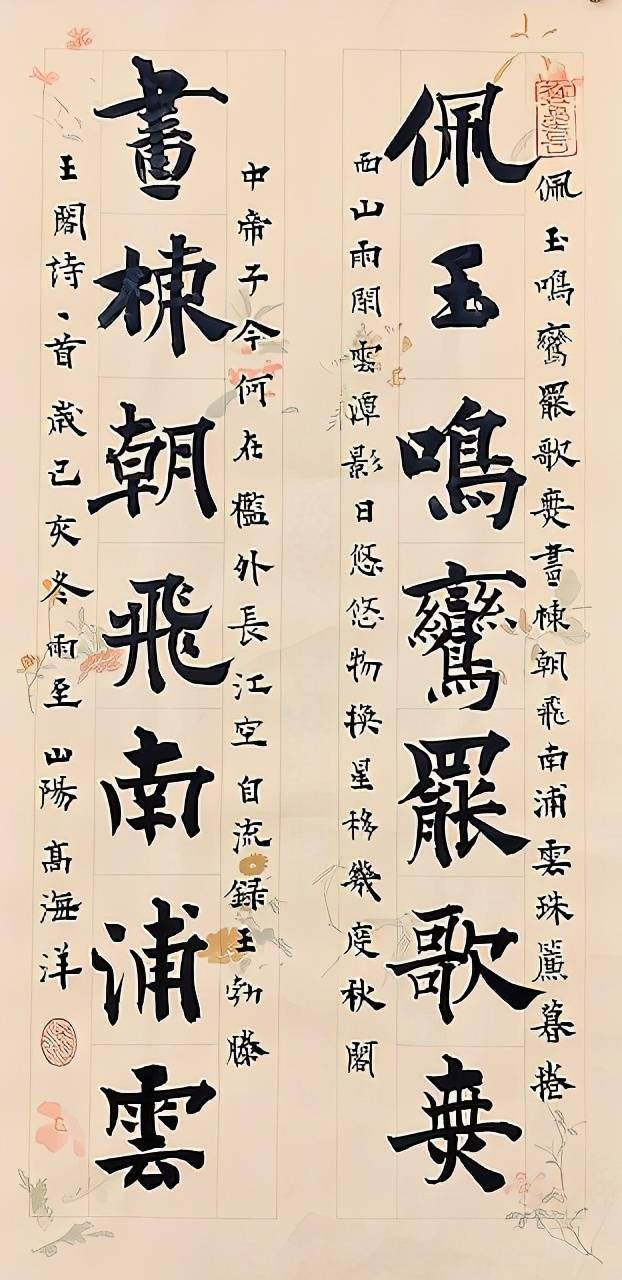 佩玉鳴鸞罷歌舞畫棟朝飛南浦雲珠簾暮捲
佩玉鳴鸞罷歌舞
西山雨閑雲潭影日悠悠物換星移幾度秋閣
中帝子今何在檻外長江空自流録王勃滕
畫棟朝飛南浦雲
王閣詩一首歲己亥冬雨至山陽高海洋